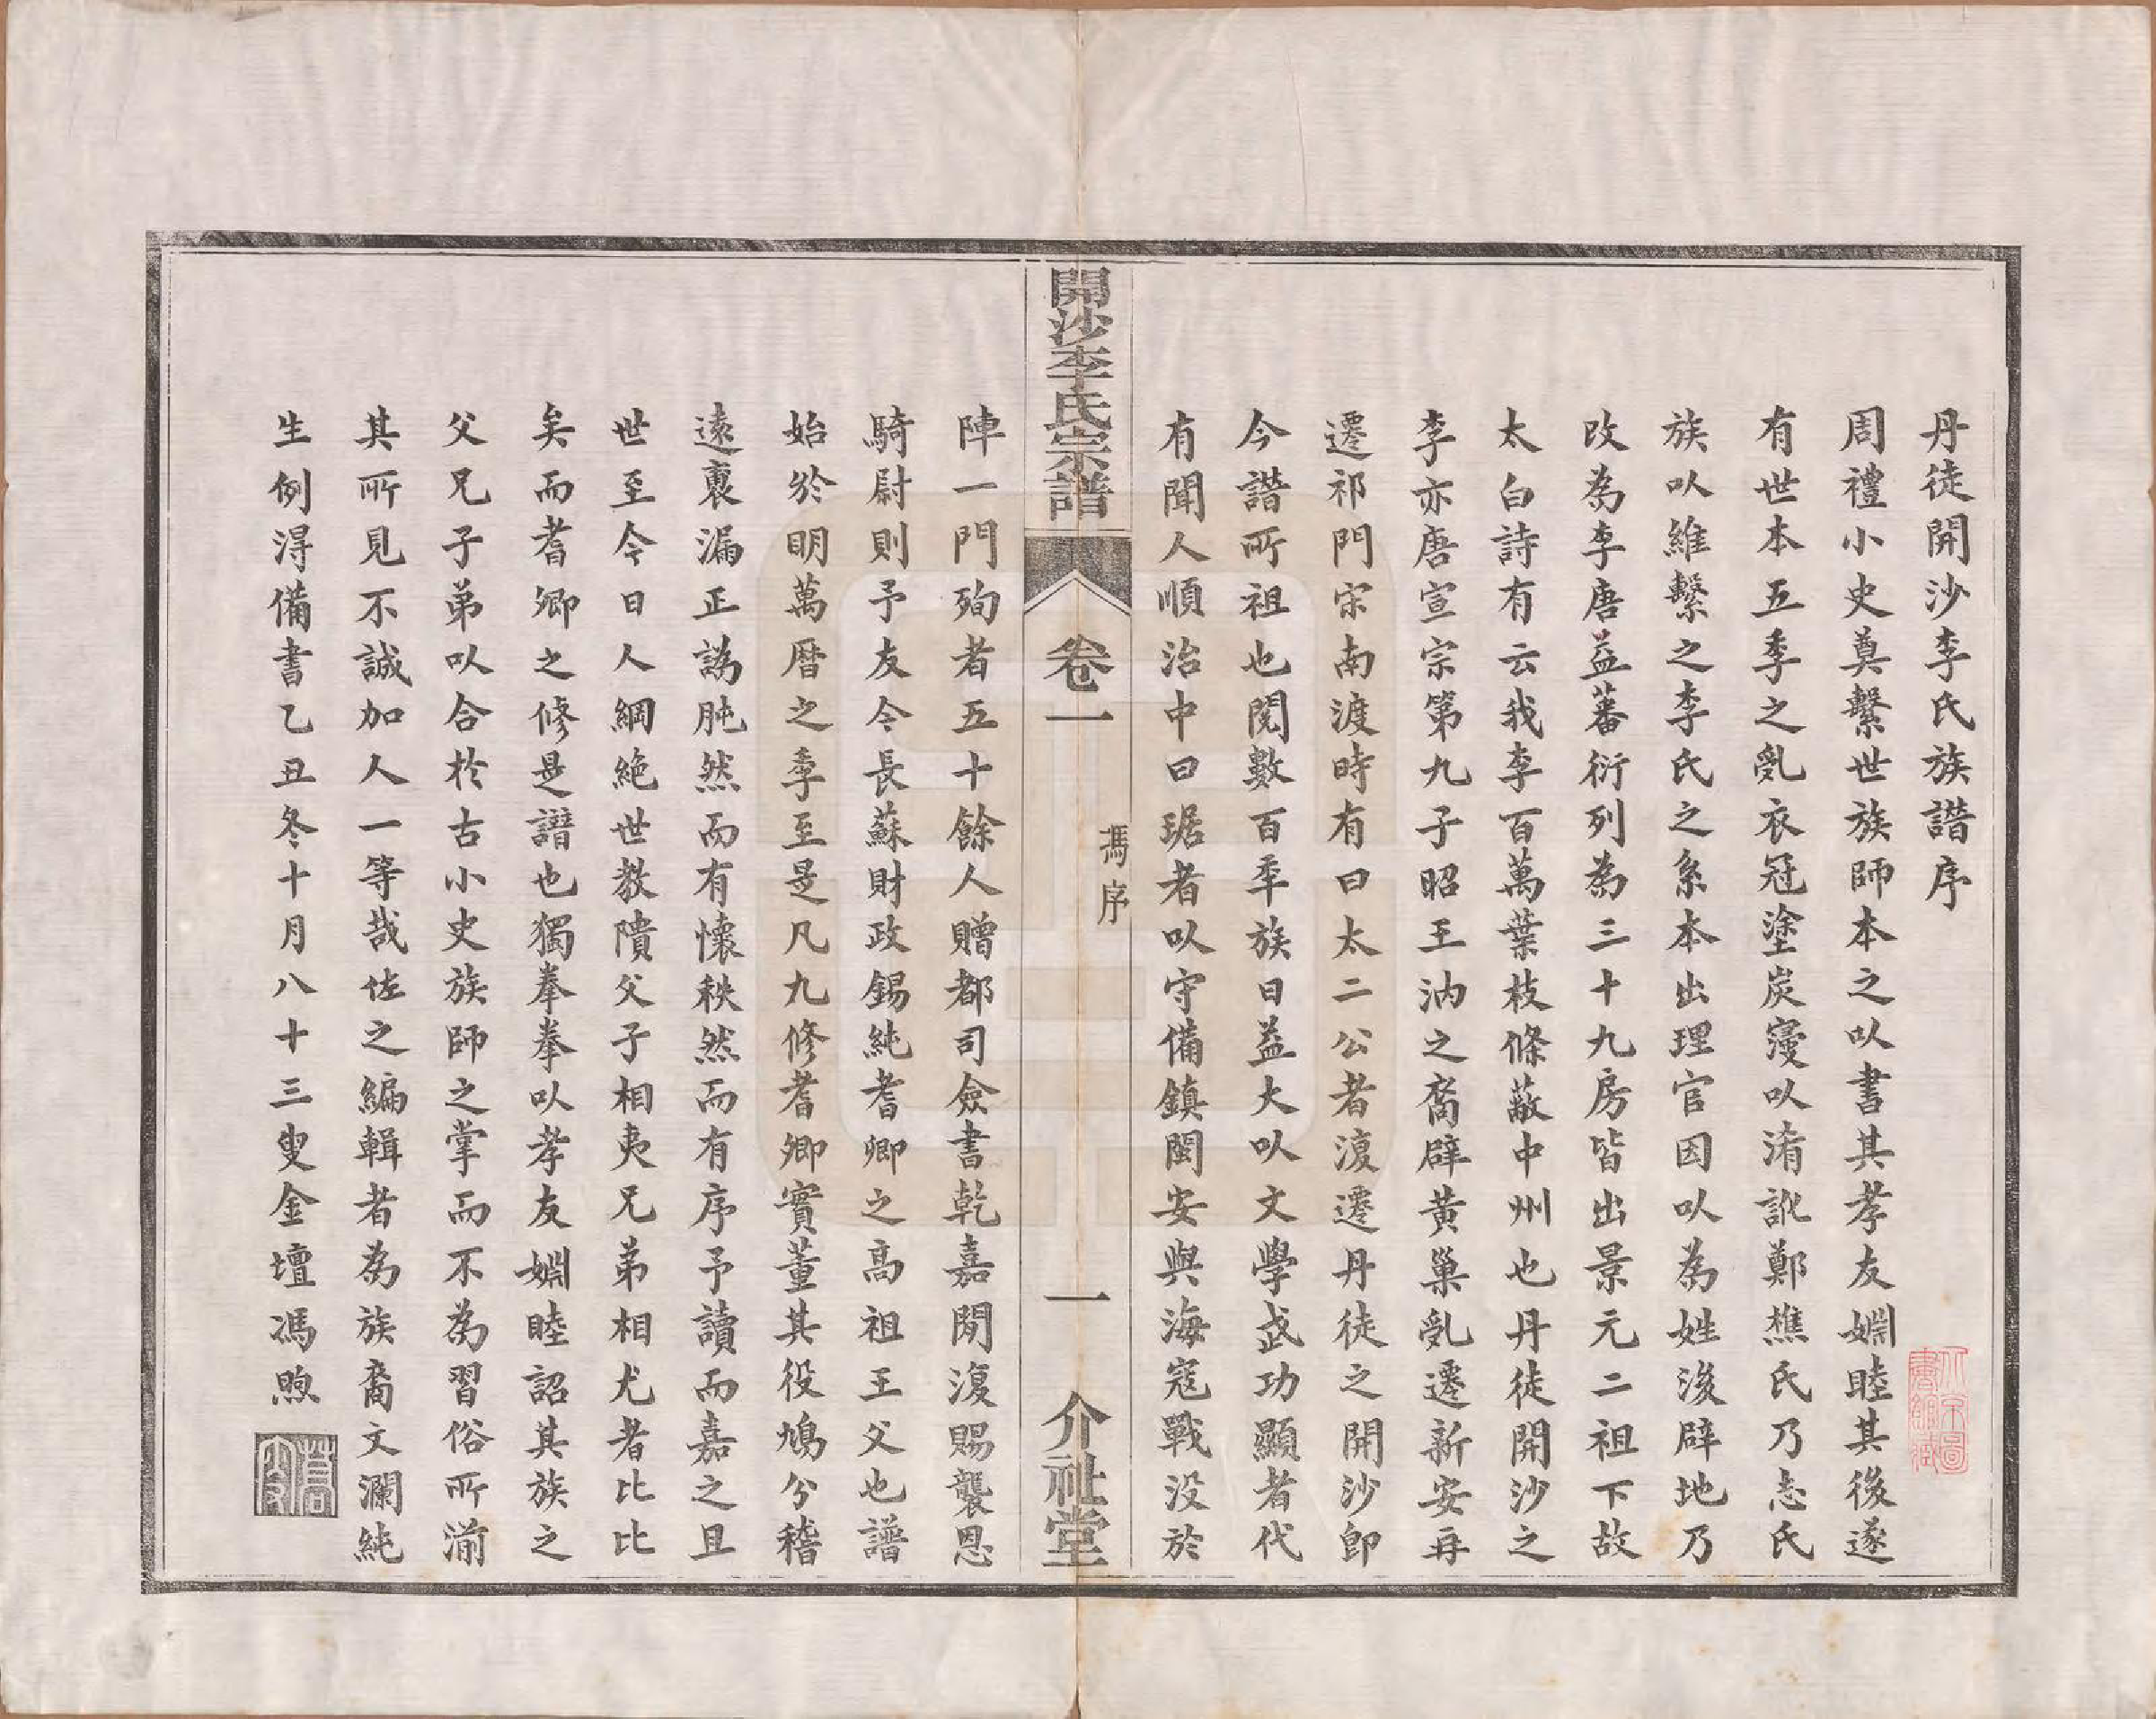 丹徒開沙李氏族譜序
周禮小史奠繫世族師本之以書其孝友婣睦其後遂
有世本五季之亂衣冠塗炭寖以淆訛鄭樵氏乃志氏
族以維繫之李氏之系本出理官因以為姓後辟地乃
改為李唐益蕃衍列為三十九房皆出景元二祖下故
太白詩有云我李百萬葉枝條蔽中州也丹徒開沙之
李亦唐宣宗第九子昭王汭之裔辟黃巢亂遷新安再
遷祁門宋南渡時有曰太二公者復遷丹徒之開沙卽
今譜所祖也閱數百年族日益大以文學武功顯者代
有聞人順治中曰琚者以守備鎮閩安與海寇戰没於
開沙李氏宗譜
卷一
馮序
一
介祉堂
陣一門殉者五十餘人贈都司僉書乾嘉閒復賜襲恩
騎尉則予友今長蘇財政錫純耆卿之高祖王父也譜
始於明萬曆之季至是凡九修耆卿實董其役鳩分稽
遠裒漏正譌肫然而有懷秩然而有序予讀而嘉之且
世至今日人綱絶世教隤父子相夷兄弟相尤者比比
矣而耆卿之修是譜也獨拳拳以孝友婣睦詔其族之
父兄子弟以合於古小史族師之掌而不為習俗所湔
其所見不誠加人一等哉佐之編輯者為族裔文瀾純
生例得備書乙丑冬十月八十三叟金壇馮煦